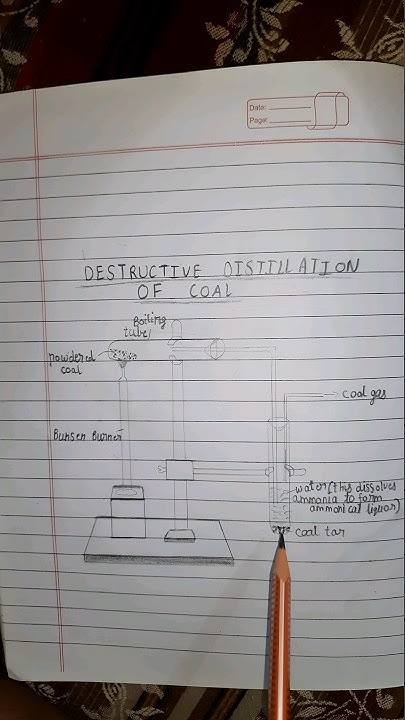 Date:
Page:
DESTRUCTIVE DISTILLATION
OF COAL
Boiling
tube
powdered
coal
coal gas
Bunsen Burner
water (this dissolves
ammonia to form
ammonical liquor)
coal tar